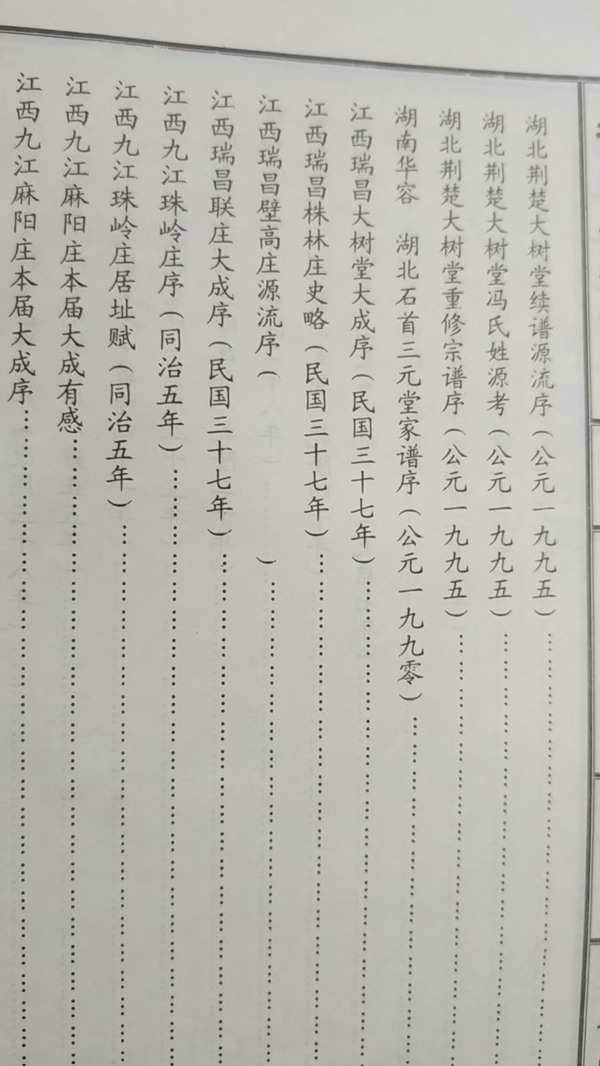 湖北荆楚大树堂续谱源流序(公元一九九五)
湖北荆楚大树堂冯氏姓源考(公元一九九五)
湖北荆楚大树堂重修宗谱序(公元一九九五)
湖南华容 湖北石首三元堂家谱序(公元一九九零)
江西瑞昌大树堂大成序(民国三十七年)
江西瑞昌株林庄史略(民国三十七年)
江西瑞昌壁高庄源流序( )
江西瑞昌联庄大成序(民国三十七年)
江西九江珠岭庄序(同治五年)
江西九江珠岭庄居址赋(同治五年)
江西九江麻阳庄本届大成有感
江西九江麻阳庄本届大成序